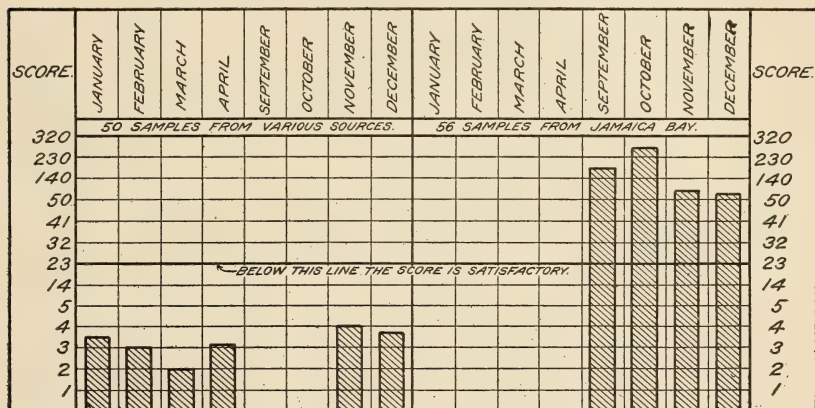 SCORE. JANUARY FEBRUARY MARCH APRIL SEPTEMBER OCTOBER NOVEMBER DECEMBER JANUARY FEBRUARY MARCH APRIL SEPTEMBER OCTOBER NOVEMBER DECEMBER SCORE.
50 SAMPLES FROM VARIOUS SOURCES. 56 SAMPLES FROM JAMAICA BAY.
320 320
230 230
140 140
50 50
41 41
32 32
23 23
BELOW THIS LINE THE SCORE IS SATISFACTORY.
14 14
5 5
4 4
3 3
2 2
1 1